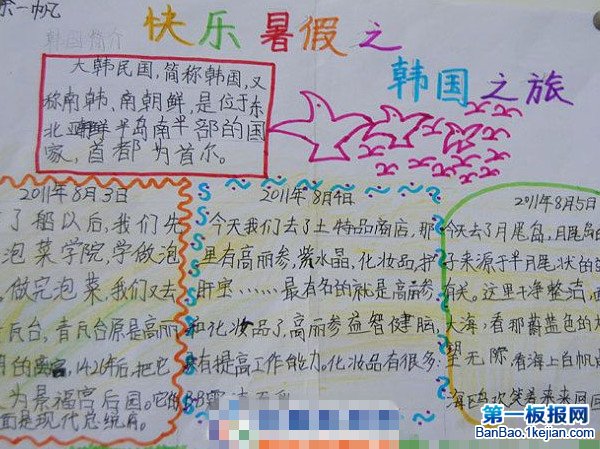 一帆
韩国简介
快乐暑假之
韩国之旅
大韩民国,简称韩国,又
称南韩,南朝鲜,是位于东
北 半岛南半部的国
家,首都为首尔。
2011年8月3日
了船以后,我们先
泡菜学院,学做泡
做完泡菜,我们又去
瓦台,青瓦台原是高丽
1426年后,把它
为景福高后园。它
面是现代总统府。
2011年8月4日
今天我们去了土特品商店,那
里有高丽参,紫水晶,化妆品,护
肝宝……最有名的就是高丽参,
和化妆品了,高丽参益智健脑,
有提高工作能力。化妆品有很多:
2011年8月5日
今天去了月尾岛,月尾岛
好来源于半月尾状的
有关。这里干净整洁,面
大海,看那蔚蓝色的大
望无际,看海上白帆点
海鸥欢笑着来来回回
第一板报网
BanBao.1kejian.com